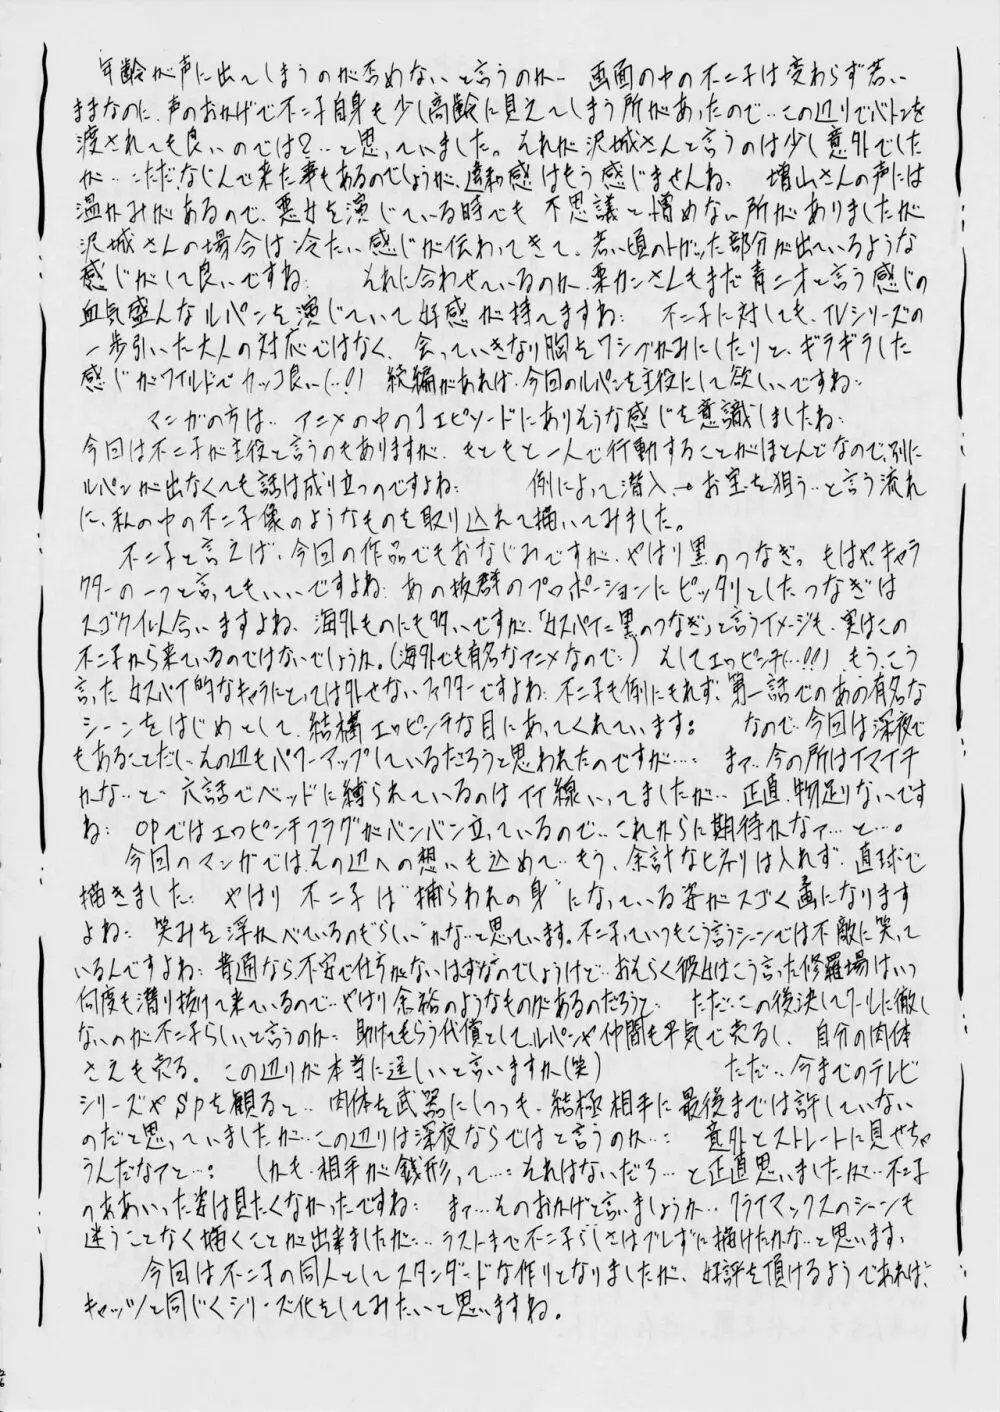 年齢が声に出てしまうのが否めないと言うのか… 画面の中の不二子は変わらず若い
ままなのに、声のおかげで不二子自身も少し高齢に見えてしまう所があったので…この辺りでバトンを
渡されても良いのでは?…と思っていました。それが沢城さんと言うのは少し意外でした
が…ただ、なじんで来た事もあるのでしょうが、違和感はもう感じませんね、 増山さんの声には
温かみがあるので、悪女を演じている時でも 不思議と憎めない所がありましたが
沢城さんの場合は冷たい感じが伝わってきて、若い頃のトガった部分が出ているような
感じがして良いですね: それに合わせているのか、栗カンさんもまだ青二才と言う感じの
血気盛んなルパンを演じていて好感が持てますね: 不二子に対しても、TVシリーズの
一歩引いた大人の対応ではなく、会っていきなり胸をワシづかみにしたりと、ギラギラした
感じがワイルドでカッコ良い(…!) 続編があれば、今回のルパンを主役にして欲しいですね…
マンガの方は… アニメの中の1エピソードにありそうな感じを意識しましたね:
今回は不二子が主役と言うのもありますが、もともと一人で行動することがほとんどなので、別に
ルパンが出なくても話は成り立つのですよね: 例によって潜入→お宝を狙う…と言う流れ
に、私の中の不二子像のようなものを取り込れて描いてみました。
不二子と言えば、今回の作品でもおなじみですが、やはり黒のつなぎ。もはや、キャラ
クターの一つと言ってもいいですよね: あの抜群のプロポーションにピッタリとしたつなぎは
スゴク似合いますよね、海外ものにも多いですが、「女スパイに黒のつなぎ」と言うイメージも、実はこの
不二子から来ているのではないでしょうか。(海外でも有名なアニメなので…) そしてエッピンチ(…!!) もう、こう
言った女スパイ的なキャラにとっては外せないファクターですよね: 不二子も例にもれず、第一話でのあの有名な
シーンをはじめとして、結構エッピンチな目にあってくれています: なので、今回は深夜で
もあることだし、その辺もパワーアップしているだろうと思われたのですが…: まァ…今の所はイマイチ
かな…と… 六話でベッドに縛られているのはイイ線いってましたが… 正直、物足りないです
ね: OPではエッピンチフラグがバンバン立っているので…これからに期待かなァ…と…。
今回のマンガではその辺への想いも込めて…もう、余計なヒネリは入れず、直球で
描きました: やはり 不二子は"捕らわれの身"になっている姿がスゴく画になります
よね: 笑みを浮かべているのも"らしい"かな…と思っています。不二子っていつもこう言うシーンでは不敵に笑って
いるんですよね: 普通なら、不安で仕方がないはずなのでしょうけど…おそらく彼女はこう言った修羅場はいつ
何度も潜り抜けて来ているので…やはり余裕のようなものがあるのだろうと… ただ…この後決してクールに徹し
ないのが不二子らしいと言うのか: 助けてもらう代償としてルパンや仲間も平気で売るし、自分の肉体
さえも売る。この辺りが本当に逞しいと言いますか(笑) ただ…今までのテレビ
シリーズやSPを観ると… 肉体を武器にしつつも、結極相手に最後までは許していない
のだと思っていましたが…この辺りは深夜ならではと言うのか…: 意外とストレートに見せちゃ
うんだなァと…: しかも、相手が銭形って…:それはないだろ…と正直思いましたが…不二子
のああいった姿は見たくなかったですね: まァ…そのおかげと言いましょうか…クライマックスのシーンも
迷うことなく描くことが出来ましたが…ラストまで不二子らしさはブレずに描けたかな…と思います、
今回は不二子の同人としてスタンダードな作りとなりましたが、好評を頂けるようであれば、
キャッツと同じくシリーズ化をしてみたいと思いますね。